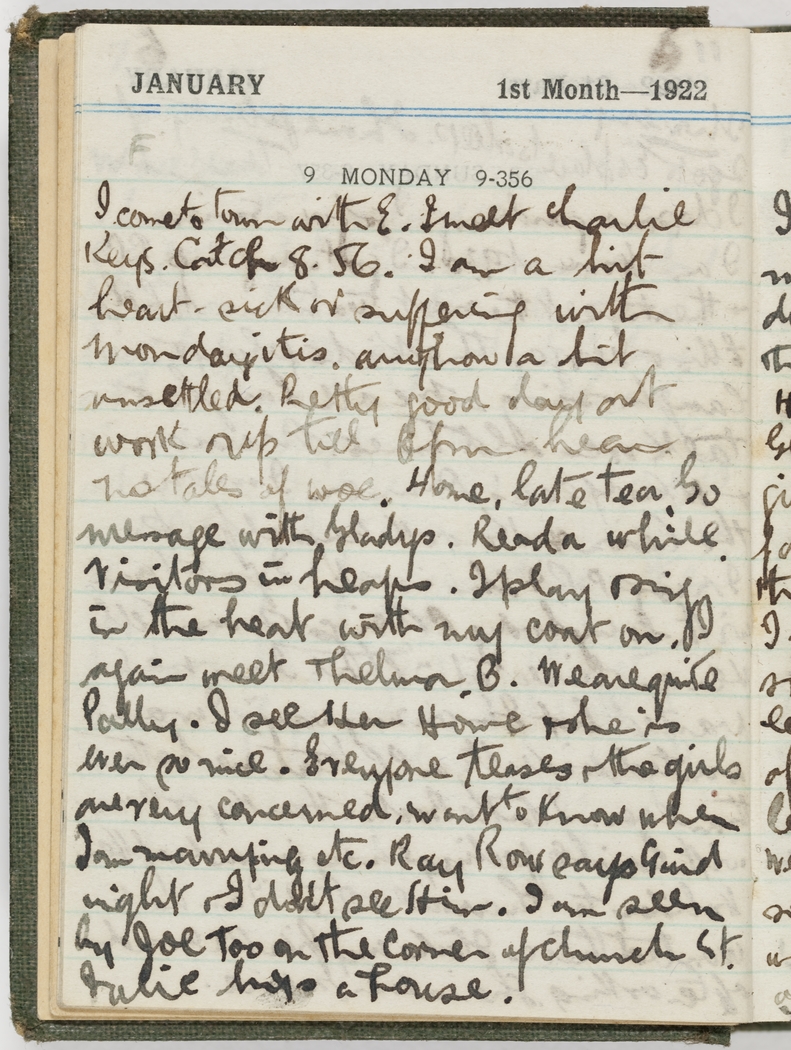 JANUARY 1st Month—1922
9 MONDAY 9-356
I come to town with E. I meet Charlie
Keys. Catch 8.56. I am a bit
heart-sick or suffering with
Mondayitis. anyhow a bit
unsettled. Pretty good day out
work up till 6pm hear
no tales of woe. Home, late tea. Go
message with Gladys. Read a while.
Visitors in heaps. I play & sing
in the heat with my coat on. I
again meet Thelma. B. We are quite
Pally. I see Her Home & she is
ever so nice. Everyone teases & the girls
are very concerned. want to know when
I am marrying etc. Ray Row says Good
night & I didn't see Him. I am seen
by Joe too on the corner of church St.
buys a house.